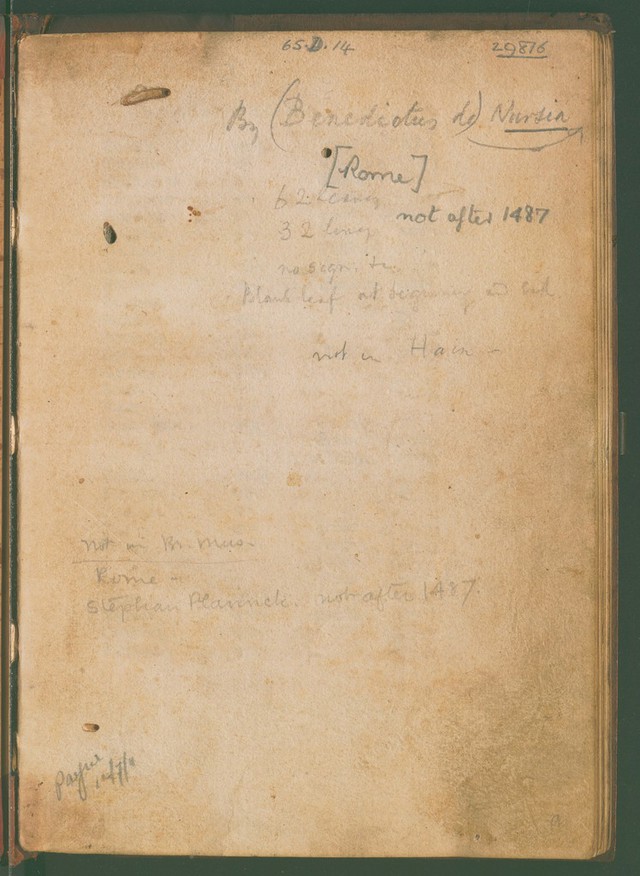 65.D.14
29876
By (Benedictus de) Nursia
[Rome]
62 leaves
not after 1487
32 lines
no sign.
Blank leaf at beginning and end.
not in Hain -
not in Br. Mus.
Rome -
Stephan Plannck. not after 1487.
Payne